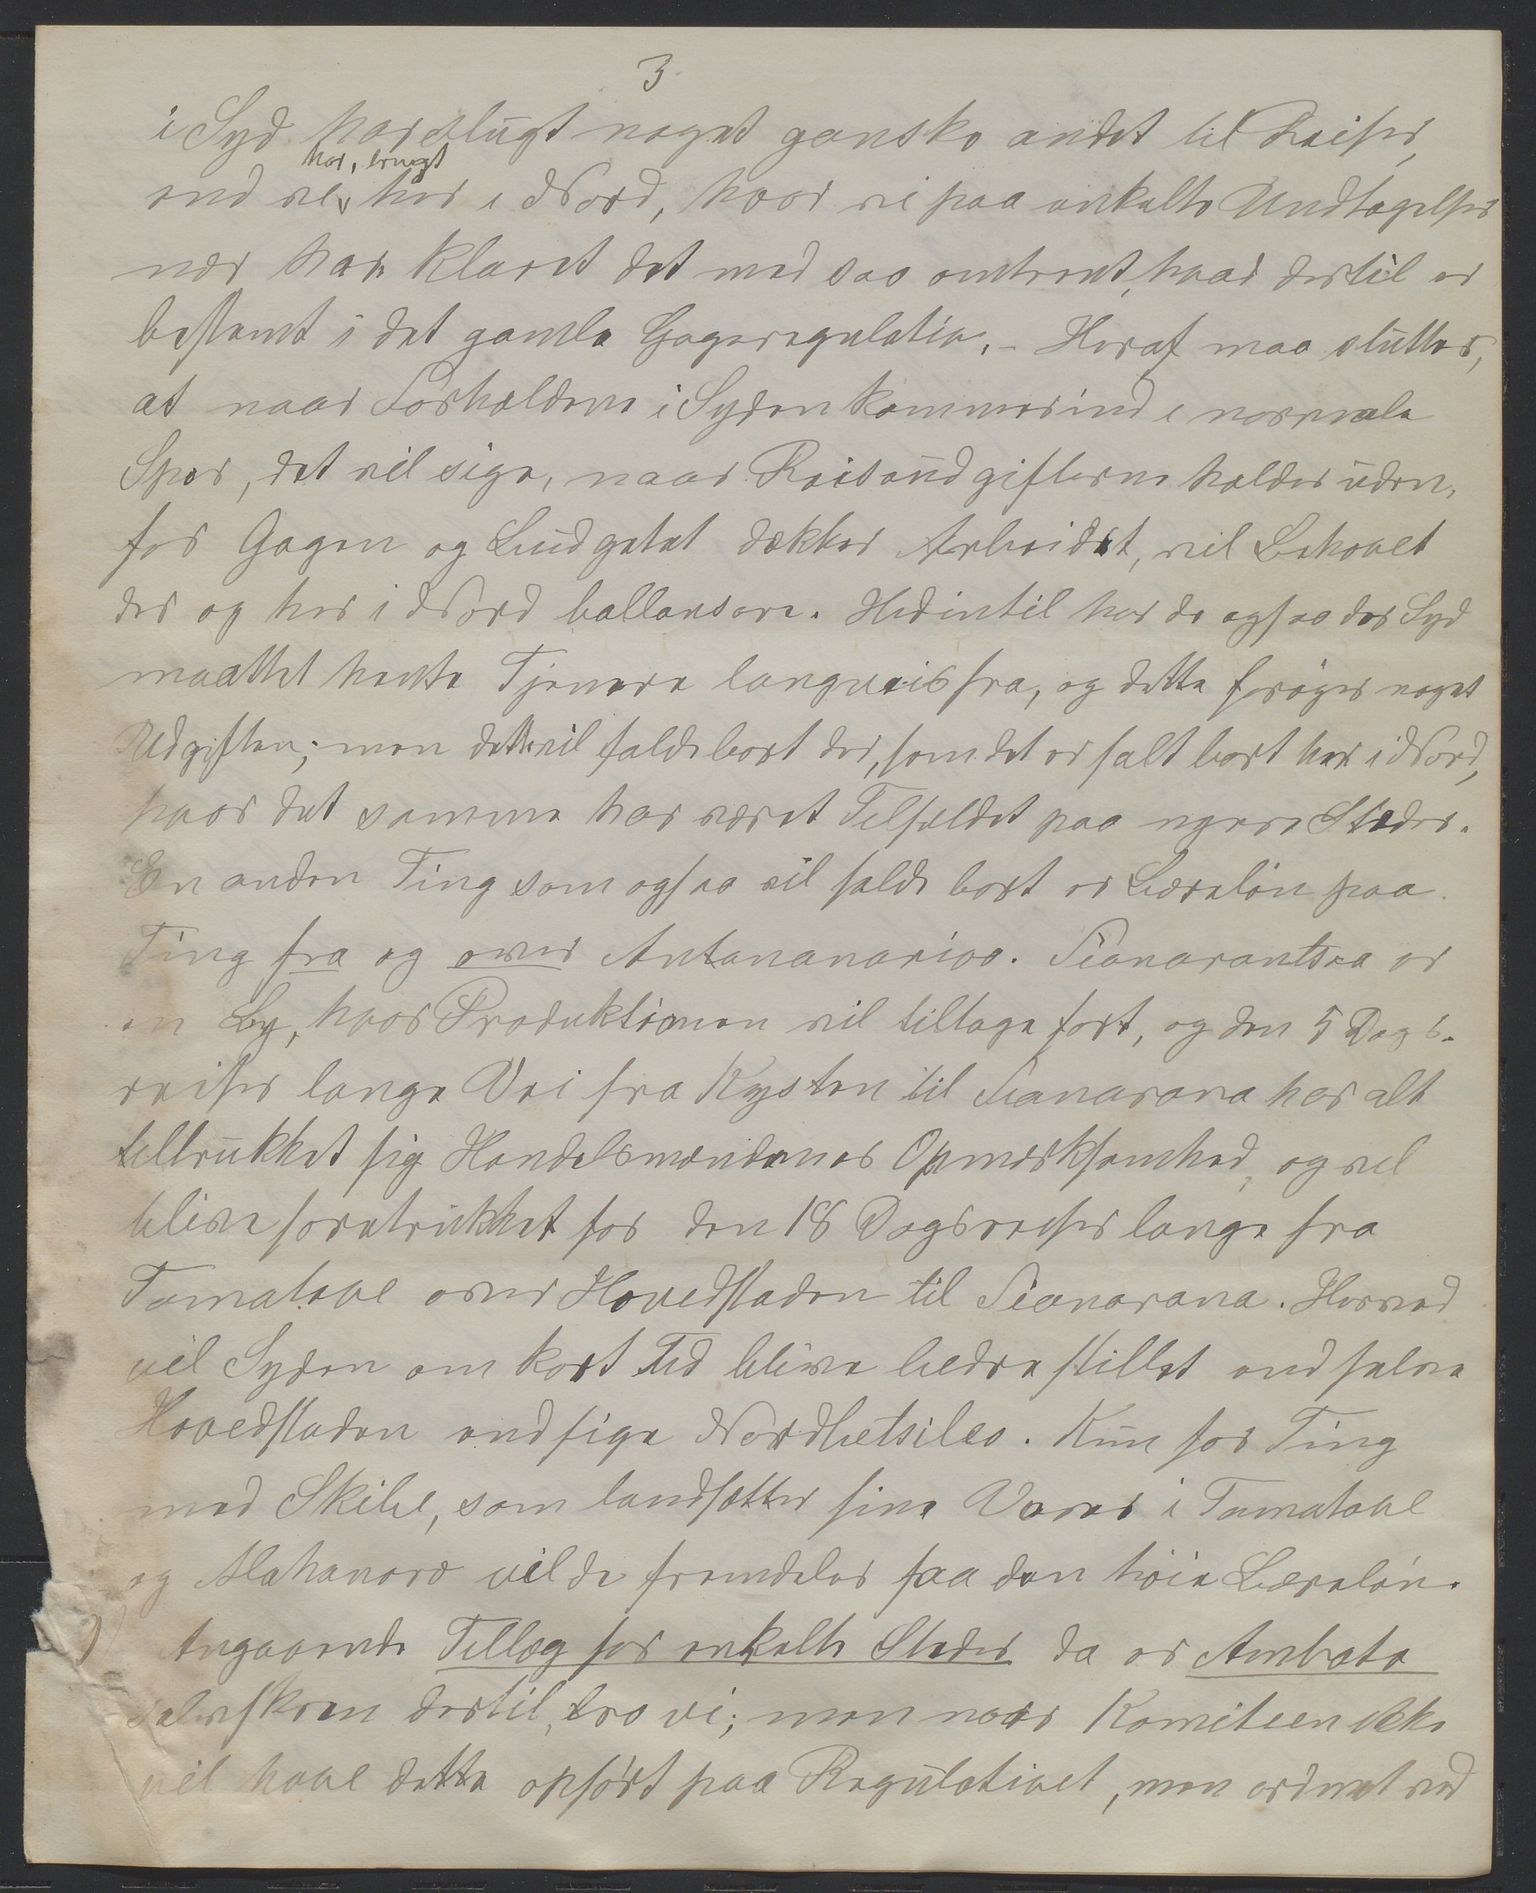 3.
i Syd har slugt noget ganske andet til Reiser,
har, brugt
end vi her i Nord, hvor vi paa enkelte Undtagelser
nær har klaret det med saa omtrent, hvad dertil er
bestemt i det gamle Gageregulativ. – Heraf maa sluttes,
at naar Forholdene i Syden kommer ind i normale
Spor, det vil sige, naar Reiseudgifterne holdes uden,
for Gagen og Budgetet dækker Arbeidet, vil Behovet
der og her i Nord ballansere. Hidintil har de ogsaa der Syd
maattet hente Tjenere langveis fra, og dette forøger noget
Udgiften; men dette vil falde bort der, som det er falt bort her i Nord,
hvor det samme har været Tilfældet paa nyere Steder.
En anden Ting som ogsaa vil falde bort er Bæreløn paa
Ting fra og over Antananarivo. Fianarantsoa er
en By, hvor Produktionen vil tiltage fort, og den 5 Dags-
reiser lange Vei fra Kysten til Fianarana har alt
tiltrukket sig Handelsmændenes Opmerksomhed, og vil
blive foretrukket for den 18 Dagsreiser lange fra
Tamatave over Hovedstaden til Fianarana. Herved
vil Syden om kort Tid blive bedre stillet end selve
Hovedstaden endsige Nordbetsileo. Kun for Ting
med Skibe, som landsætter sine Varer i Tamatave
og Mahanoro vil de fremdeles faa den høie Bæreløn.
Angaaende Tillæg for enkelte Steder da er Ambato
selvskreven dertil, tro vi; men naar Komiteen ikke
vil have dette opført paa Regulativet, men ordnet ved